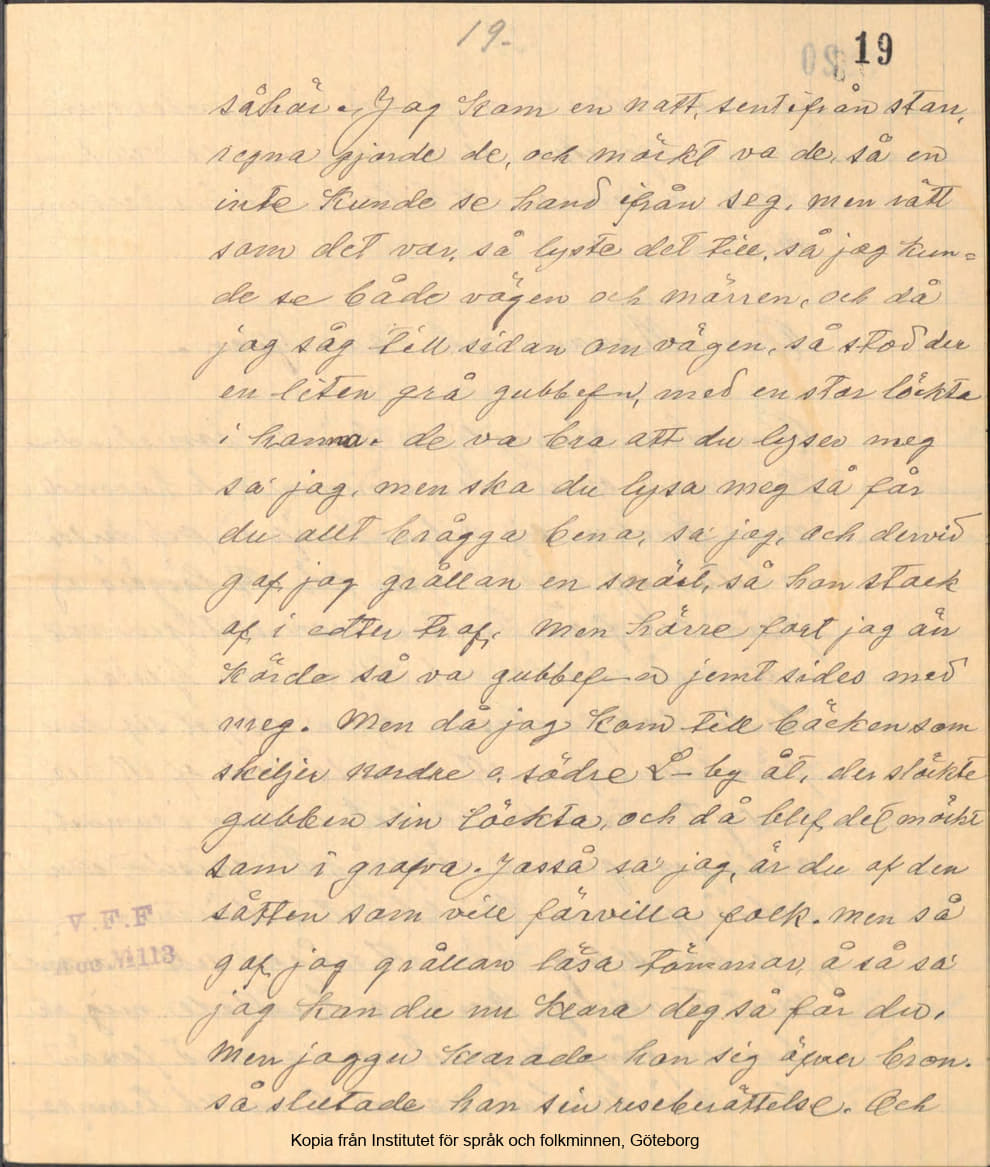 19.-
19
såhär. Jag kom en natt, sent ifrån stan,
regna gjorde de, och mörkt va de, så en
inte kunde se hand ifrån seg, men rätt
som det var, så lyste det till, så jag kun=
de se både vägen och märren, och då
jag såg till sidan om vägen, så stod der
en liten grå gubbef-n, med en stor löckta
i hanna. de va bra att du lyser meg
sa' jag, men ska du lysa meg så får
du allt brågga bena, sa' jag, och dervid
gaf jag grållan en snärt, så han stack
af i traf. Men hörre fort jag än
körde så va gubbef-n jemt sides med
meg. Men då jag kom till bäcken som
skiljer nordre o. södre L-by åt, der släckte
gubben sin löckta, och då blef det mörkt
som i grafva. Jasså sa' jag, är du af den
sätten som vill förvilla folk. men så
gaf jag grållan lösa tömmar, å så sa'
jag kan du nu klara deg så får du.
Men jaggu klarade han sig öfver bron.
så slutade han sin reseberättelse. Och
V.F.F
Acc. № 113
Kopia från Institutet för språk och folkminnen, Göteborg